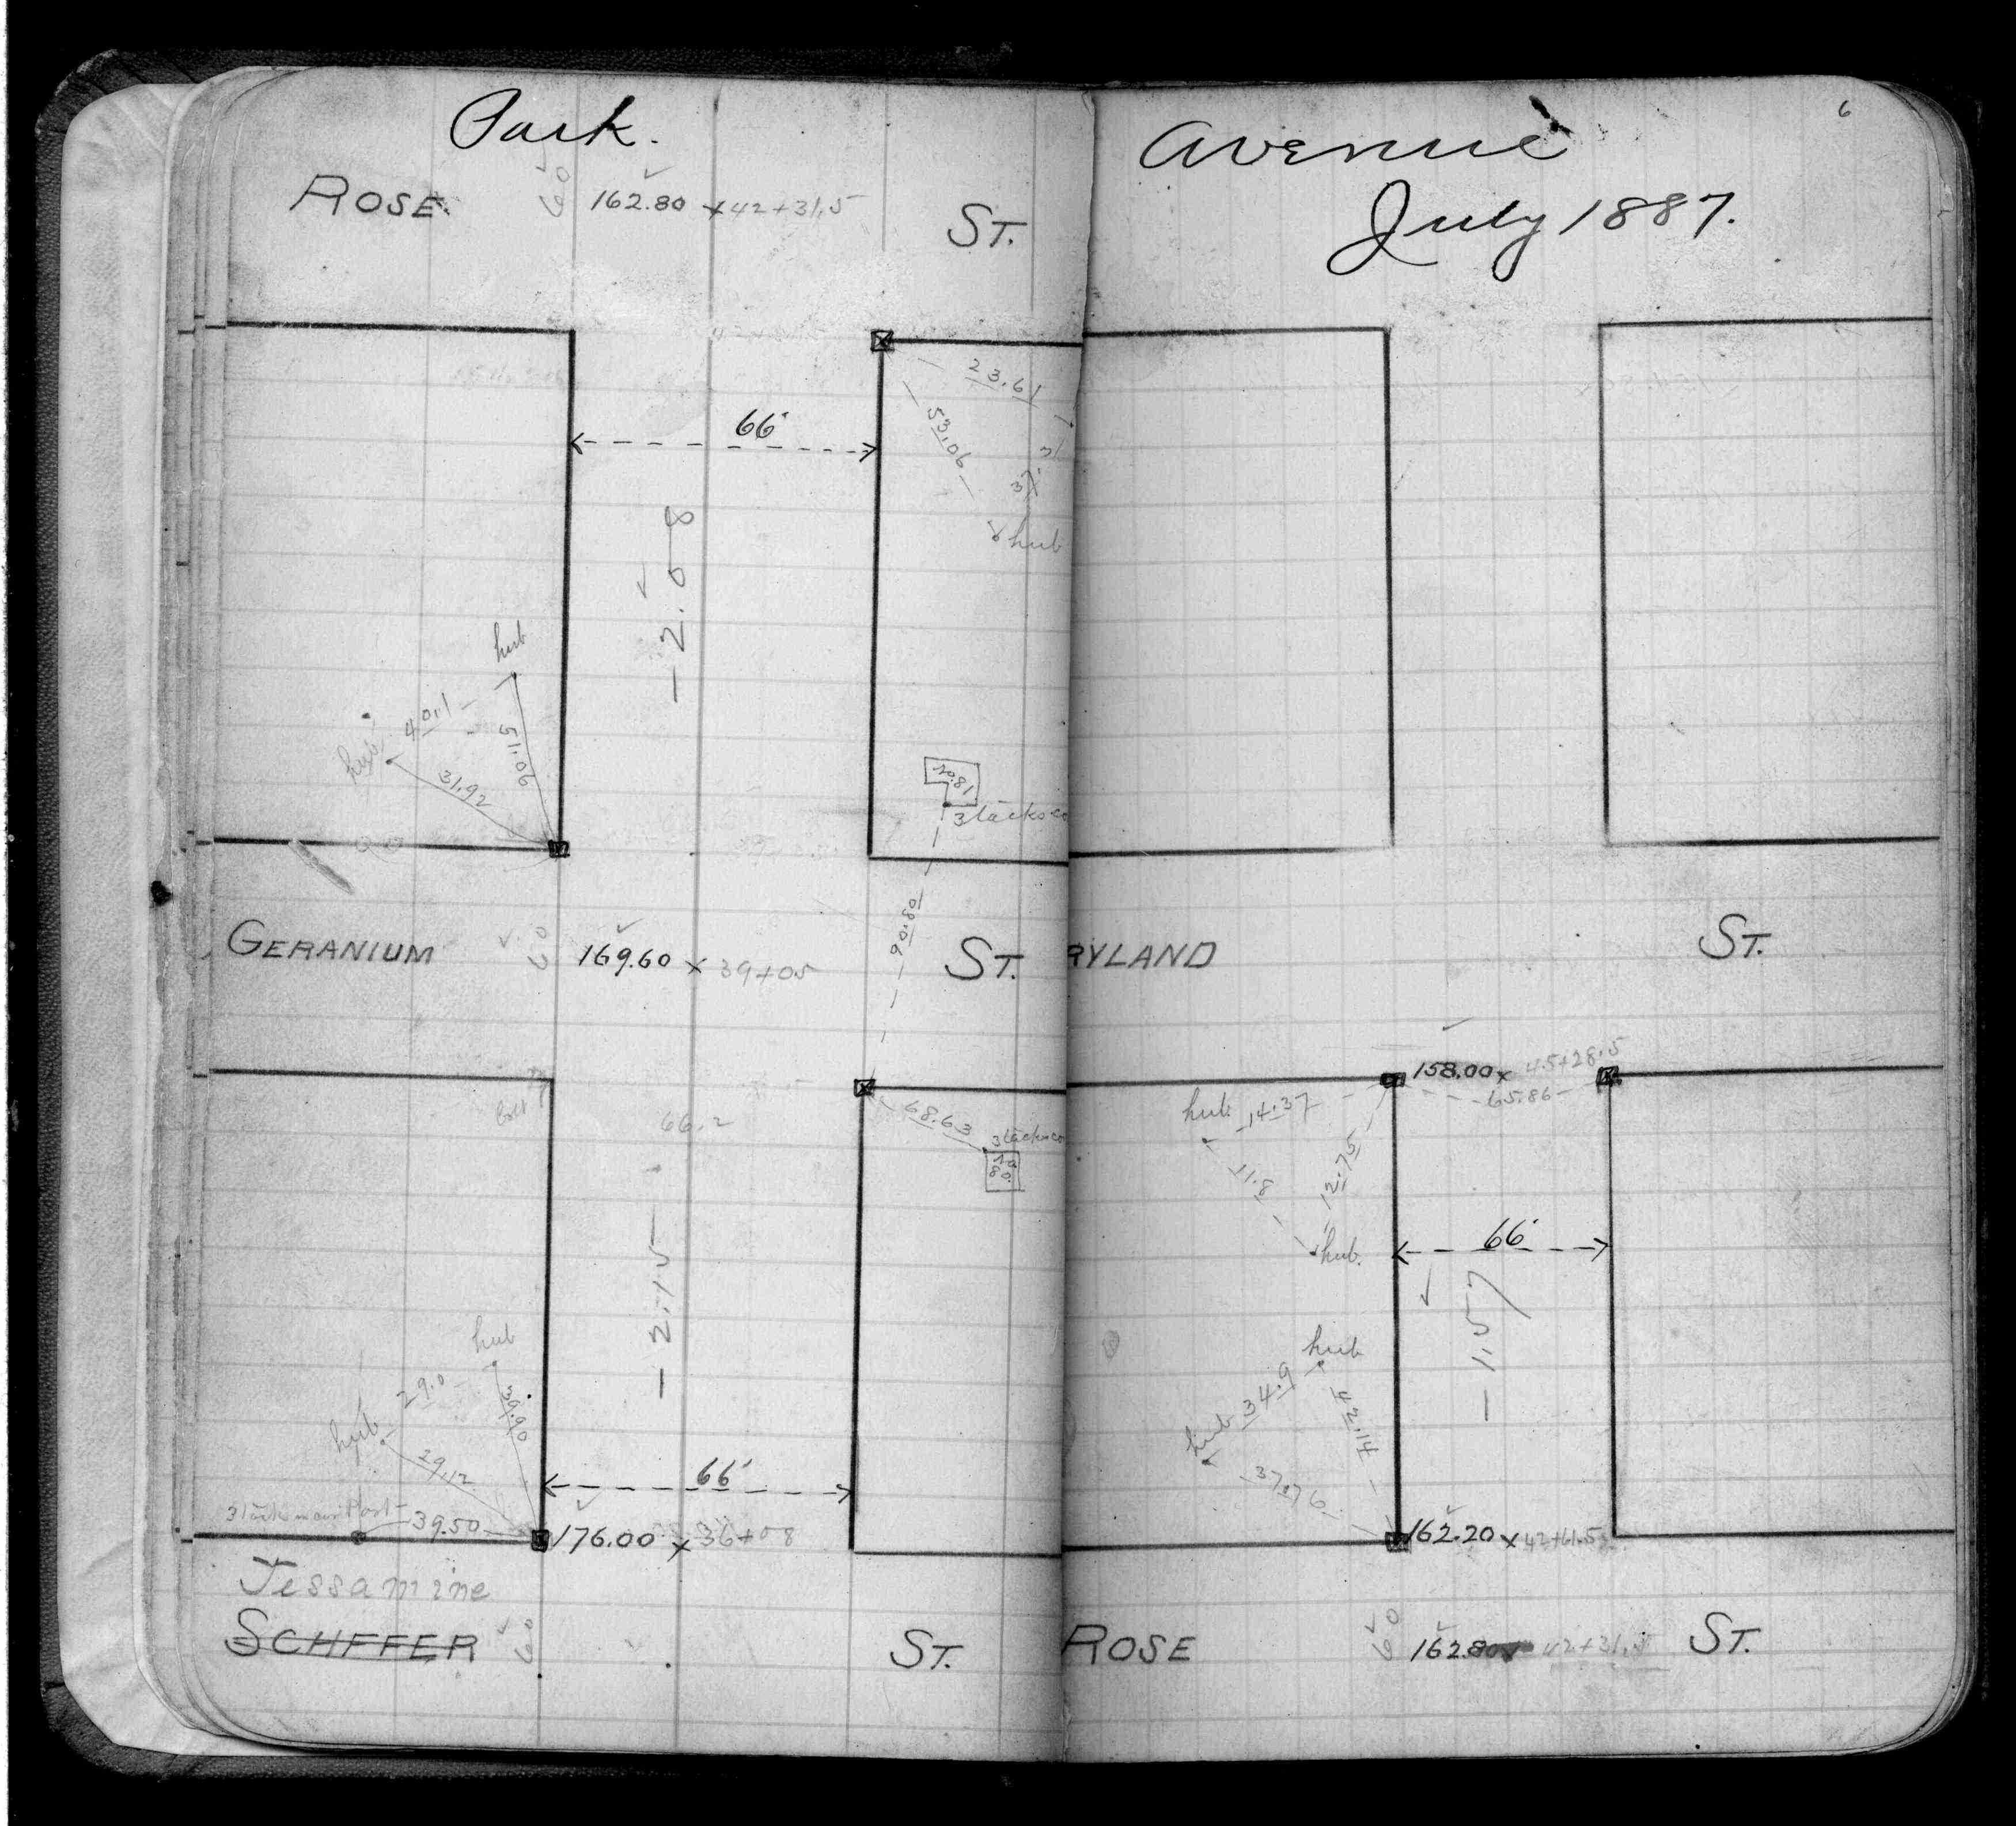 Park.
ROSE. 60 162.80 x 42+31.5 ST.
66'
23.61
53.06
37.31
hub
-2.08
hub
40.1
51.06
hub
31.92
3 tacks
GERANIUM 60 169.60 x 39+05 ST.
90.80
bolt
66.2
68.63
3 tacks
-2.15
hub
29.0
39.90
hub
29.12
66'
Post 39.50
176.00 x 36+08
Jessamine
SCHFFER 60 ST.
6
Avenue
July 1887.
RYLAND ST.
158.00 x 45+28.5
65.86
hub 14.37
11.8
12.75
hub.
66'
-1.57
hub
34.9
42.14
hub
37.76
162.20 x 42+61.5
ROSE 60 162.80 42+31.5 ST.